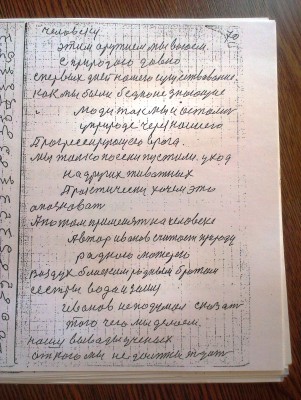 человеку 70
этим оружием мы воюем
с природою давно
с первых дней нашего существования.
как мы были бедные не знающие
люди так мы и остались
у природе через нашего
Прогрессирующего врага.
мы только посеки пустили. уход
на других животных
Практически хочем это
опознават
А потом применять на человеке
Автор иванов считает природу
родною матерью
воздух близким родным братом
сестры вода и землю
иванов не подумал сказат
того чего мы делаем.
нашу выводы ученых
от кого мы не должны ждат